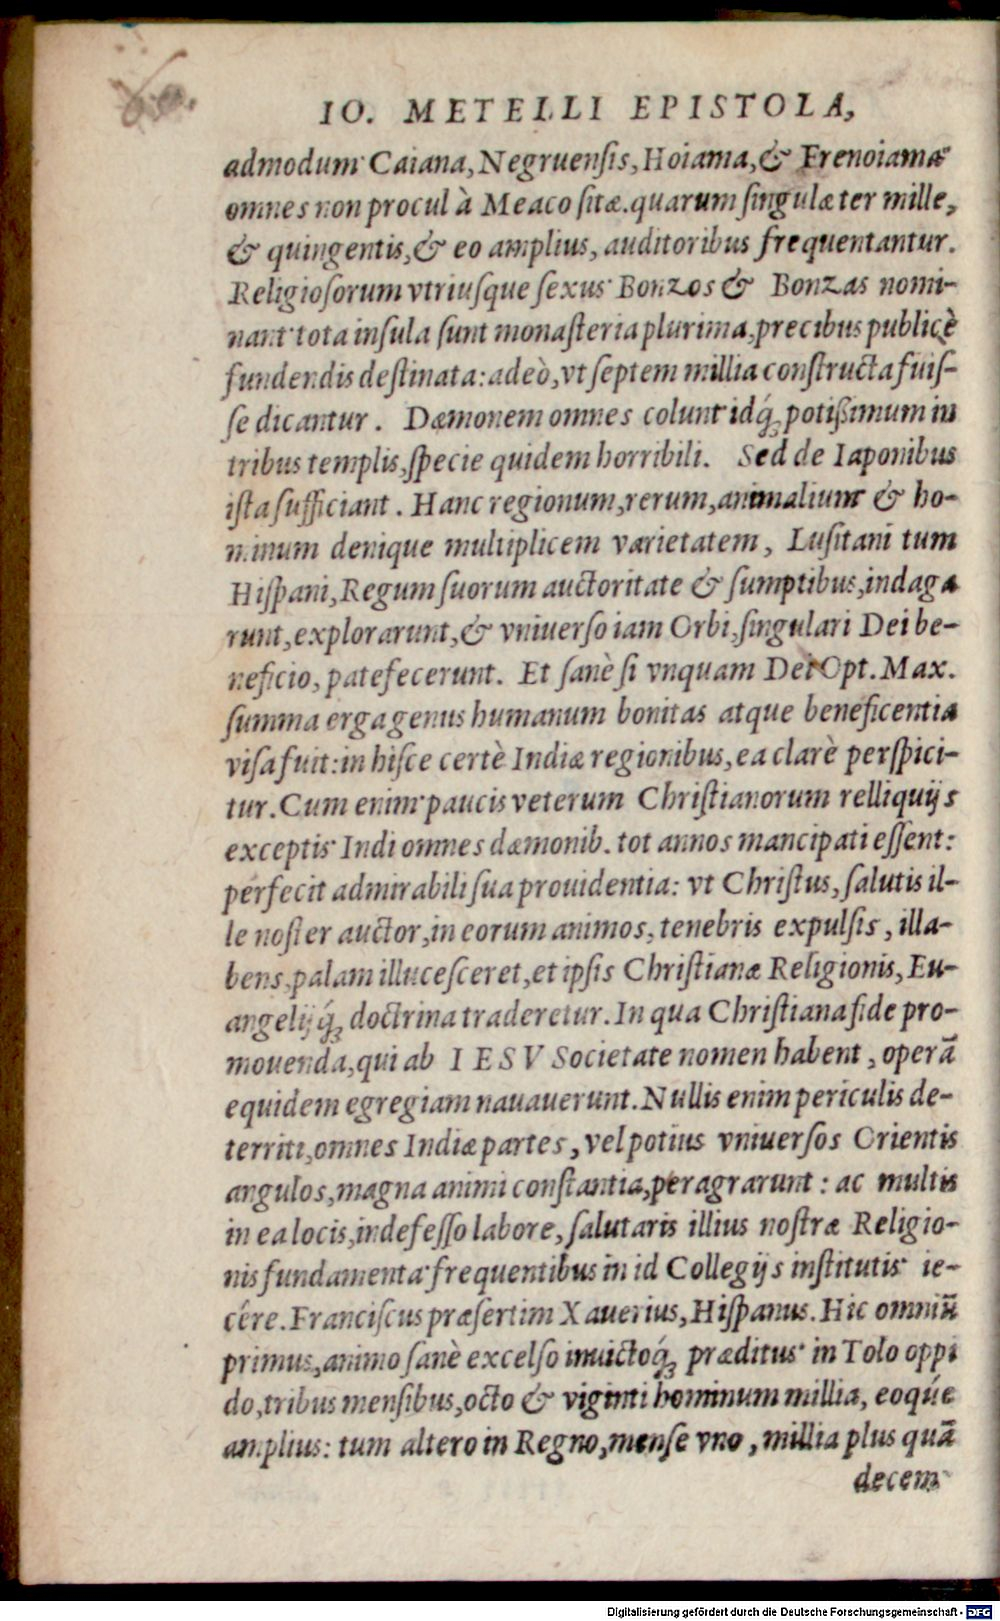 IO. METELLI EPISTOLA,
admodum Caiana, Negruensis, Hoiama, & Frenoiama
omnes non procul à Meaco sitæ. quarum singulæ ter mille,
& quingentis, & eo amplius, auditoribus frequentantur.
Religiosorum vtriusque sexus Bonzos & Bonzas nomi-
nant tota insula sunt monasteria plurima, precibus publicè
fundendis destinata: adeò, vt septem millia constructa fuis-
se dicantur. Dæmonem omnes colunt idq́; potißimum in
tribus templis, specie quidem horribili. Sed de Iaponibus
ista sufficiant. Hanc regionum, rerum, animalium & ho-
minum denique multiplicem varietatem, Lusitani tum
Hispani, Regum suorum auctoritate & sumptibus, indaga
runt, explorarunt, & vniuerso iam Orbi, singulari Dei be-
neficio, patefecerunt. Et sanè si vnquam Dei Opt. Max.
summa erga genus humanum bonitas atque beneficentia
visa fuit: in hisce certè Indiæ regionibus, ea clarè perspici-
tur. Cum enim paucis veterum Christianorum relliquijs
exceptis Indi omnes dæmonib. tot annos mancipati essent:
perfecit admirabili sua prouidentia: vt Christus, salutis il-
le noster auctor, in eorum animos, tenebris expulsis, illa-
bens, palam illucesceret, et ipsis Christianæ Religionis, Eu-
angelijq́; doctrina traderetur. In qua Christiana fide pro-
mouenda, qui ab IESV Societate nomen habent, operã
equidem egregiam nauauerunt. Nullis enim periculis de-
territi, omnes Indiæ partes, vel potius vniuersos Orientis
angulos, magna animi constantia, peragrarunt: ac multis
in ea locis, indefesso labore, salutaris illius nostræ Religio-
nis fundamenta frequentibus in id Collegijs institutis ie-
cêre. Franciscus præsertim Xauerius, Hispanus. Hic omniũ
primus, animo sanè excelso inuictoq́; præditus in Tolo oppi
do, tribus mensibus, octo & viginti hominum millia, eoque
amplius: tum altero in Regno, mense vno, millia plus quã
decem
Digitalisierung gefördert durch die Deutsche Forschungsgemeinschaft - DFG